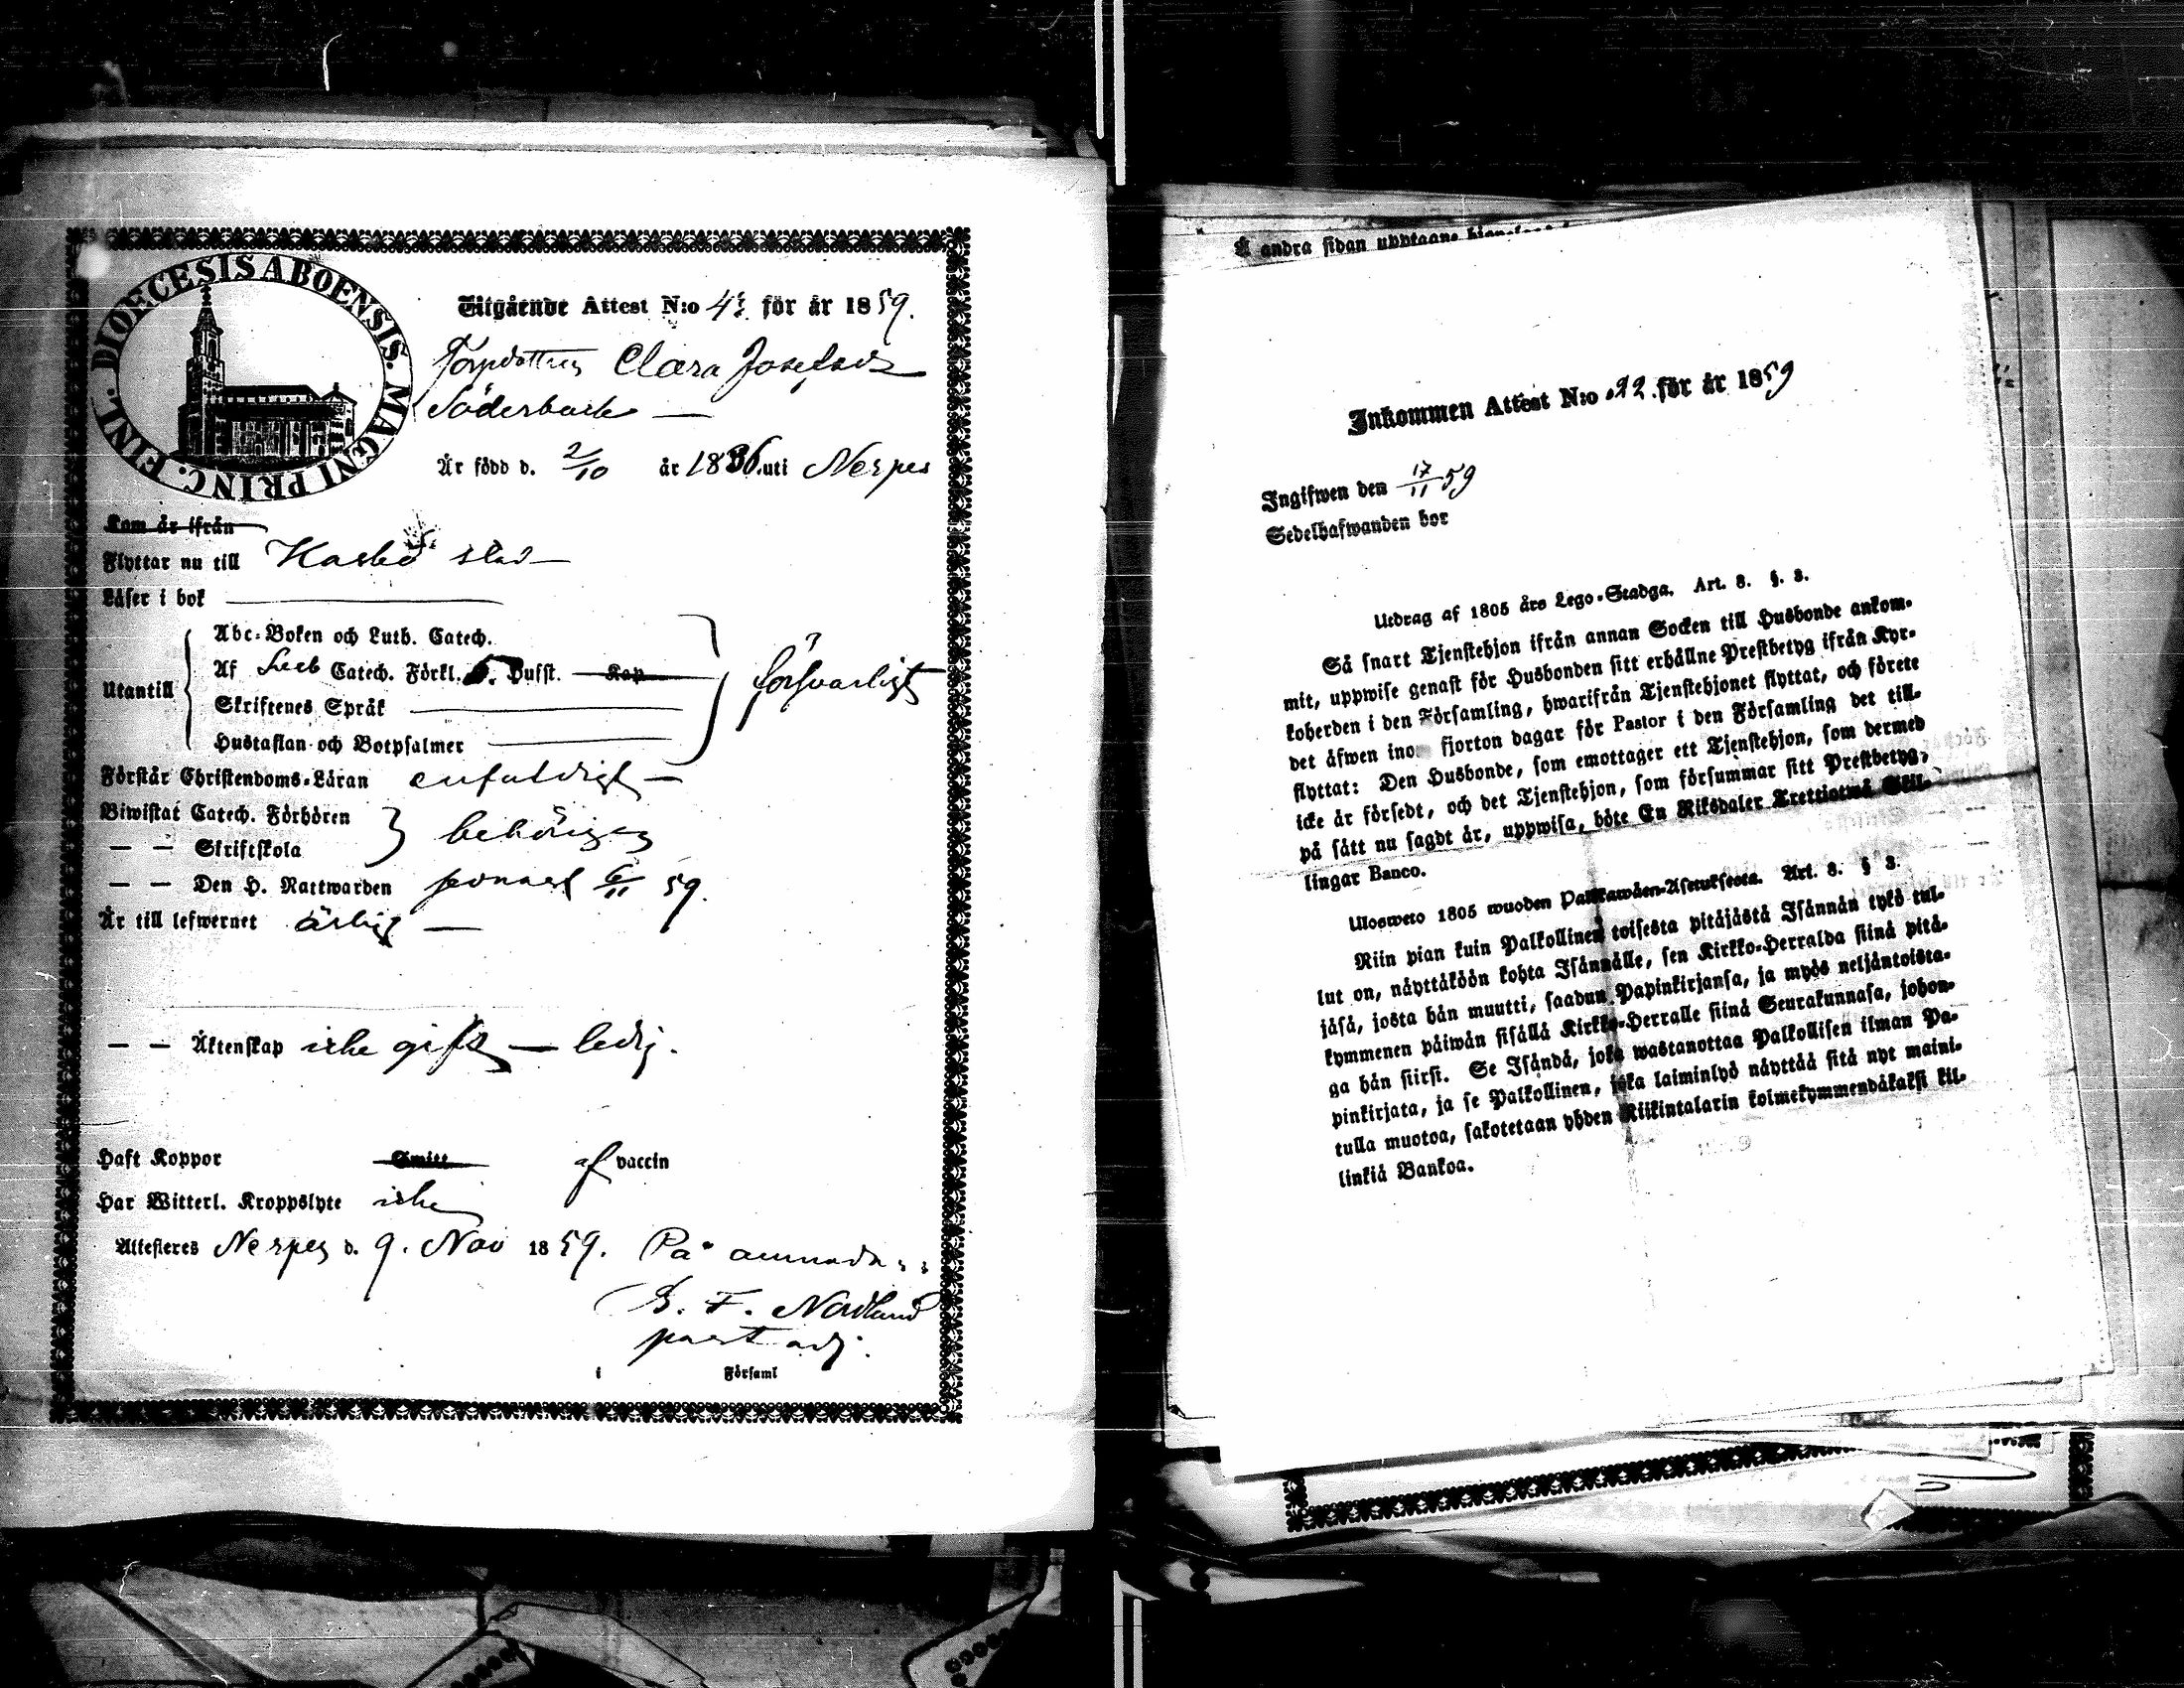 DIOECESIS ABOENSIS. MAGNI PRINC. FINL.
Utgående Attest N:o för år 1859.
Torpdottren Clara Josefsdr
Söderback
Är född d. 2/10 år 1836 uti Nerpes
Kom år ifrån
Flyttar nu till Kaskö stad
Läser i bok
Utantill
Abc-Boken och Luth. Catech.
Af Catech. Förkl. 5. Hufst. Kap
Skriftenes Språk
Hustaflan och Botpsalmer
försvarligt
Förstår Christendoms-Läran enfaldigt
Biwistat Catech. Förhören
— — Skriftskola
behörigen
— — Den H. Nattwarden senast 6/11 59.
Är till lefwernet ärlig
— — Äktenskap icke gift — ledig.
Haft Koppor Smitt af vaccin
Har Witterl. Kroppslyte icke
Attesteres Nerpes d. 9. Nov 1859. På
G. F. Nordlund
past adj.
i Församl
Å andra sidan upptages
Inkommen Attest N:o 22 för år 1859
Ingifwen den 17/11 59
Sedelhafwanden bor
Utdrag af 1805 års Lego-Stadga. Art. 8. §. 3.
Så snart Tjenstehjon ifrån annan Socken till Husbonde ankom-
mit, uppwise genast för Husbonden sitt erhållne Prestbetyg ifrån Kyr-
koherden i den Församling, hwarifrån Tjenstehjonet flyttat, och förete
det äfwen inom fjorton dagar för Pastor i den Församling det till-
flyttat: Den Husbonde, som emottager ett Tjenstehjon, som dermed
icke är försedt, och det Tjenstehjon, som försummar sitt Prestbetyg,
på sätt nu sagdt är, uppwisa, böte En Riksdaler Trettiotwå Skil-
lingar Banco.
Ulosweto 1805 wuoden Palkkawäen-Asetuksesta. Art. 8. § 3.
Niin pian kuin Palkollinen toisesta pitäjästä Isännän tykö tul-
lut on, näyttäköön kohta Isännälle, sen Kirkko-Herralda siinä pitä-
jäsä, josta hän muutti, saadun Papinkirjansa, ja myös neljäntoista-
kymmenen päiwän sisällä Kirkko-Herralle siinä Seurakunnasa, johon-
ga hän siirsi. Se Isändä, joka wastanottaa Palkollisen ilman Pa-
pinkirjata, ja se Palkollinen, joka laiminlyö näyttää sitä nyt maini-
tulla muotoa, sakotetaan yhden Riikintalarin kolmekymmendäkaksi kil-
linkiä Bankoa.